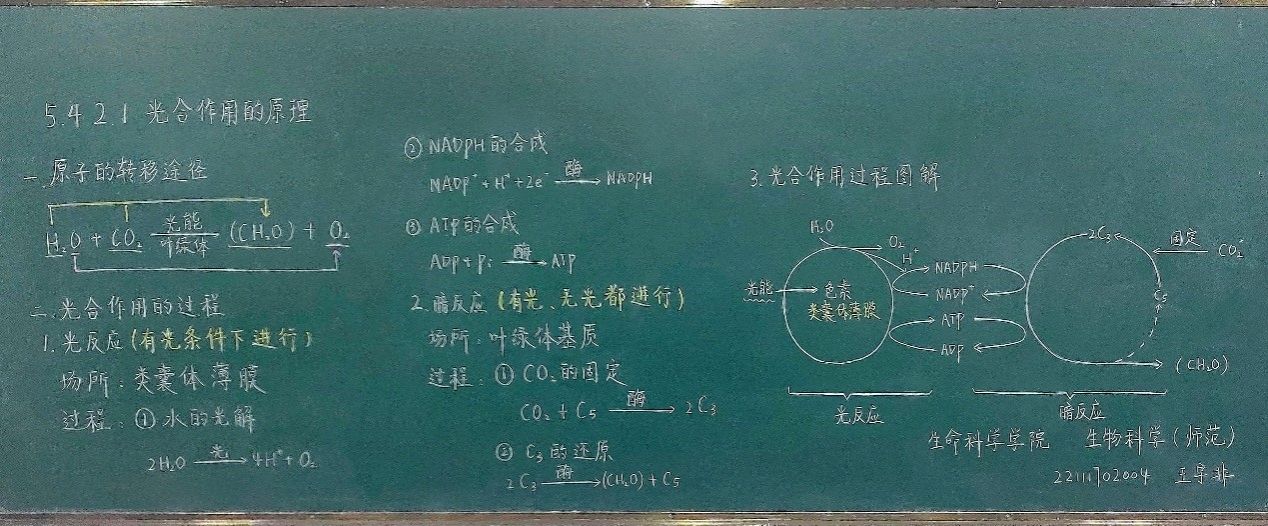 5.4.2.1 光合作用的原理
一.原子的转移途径
H₂O + CO₂ 光能 叶绿体 (CH₂O) + O₂
二.光合作用的过程
1.光反应(有光条件下进行)
场所:类囊体薄膜
过程:①水的光解
2H₂O 光 → 4H⁺ + O₂
② NADPH的合成
NADP⁺ + H⁺ + 2e⁻ 酶 → NADPH
③ ATP的合成
ADP + Pi 酶 → ATP
2.暗反应(有光、无光都进行)
场所:叶绿体基质
过程:① CO₂的固定
CO₂ + C₅ 酶 → 2C₃
② C₃的还原
2C₃ 酶 → (CH₂O) + C₅
3.光合作用过程图解
H₂O
O₂
H⁺
光能
色素
类囊体薄膜
NADPH
NADP⁺
ATP
ADP
2C₃
固定
CO₂
C₅
(CH₂O)
光反应
暗反应
生命科学学院 生物科学(师范)
22111702004